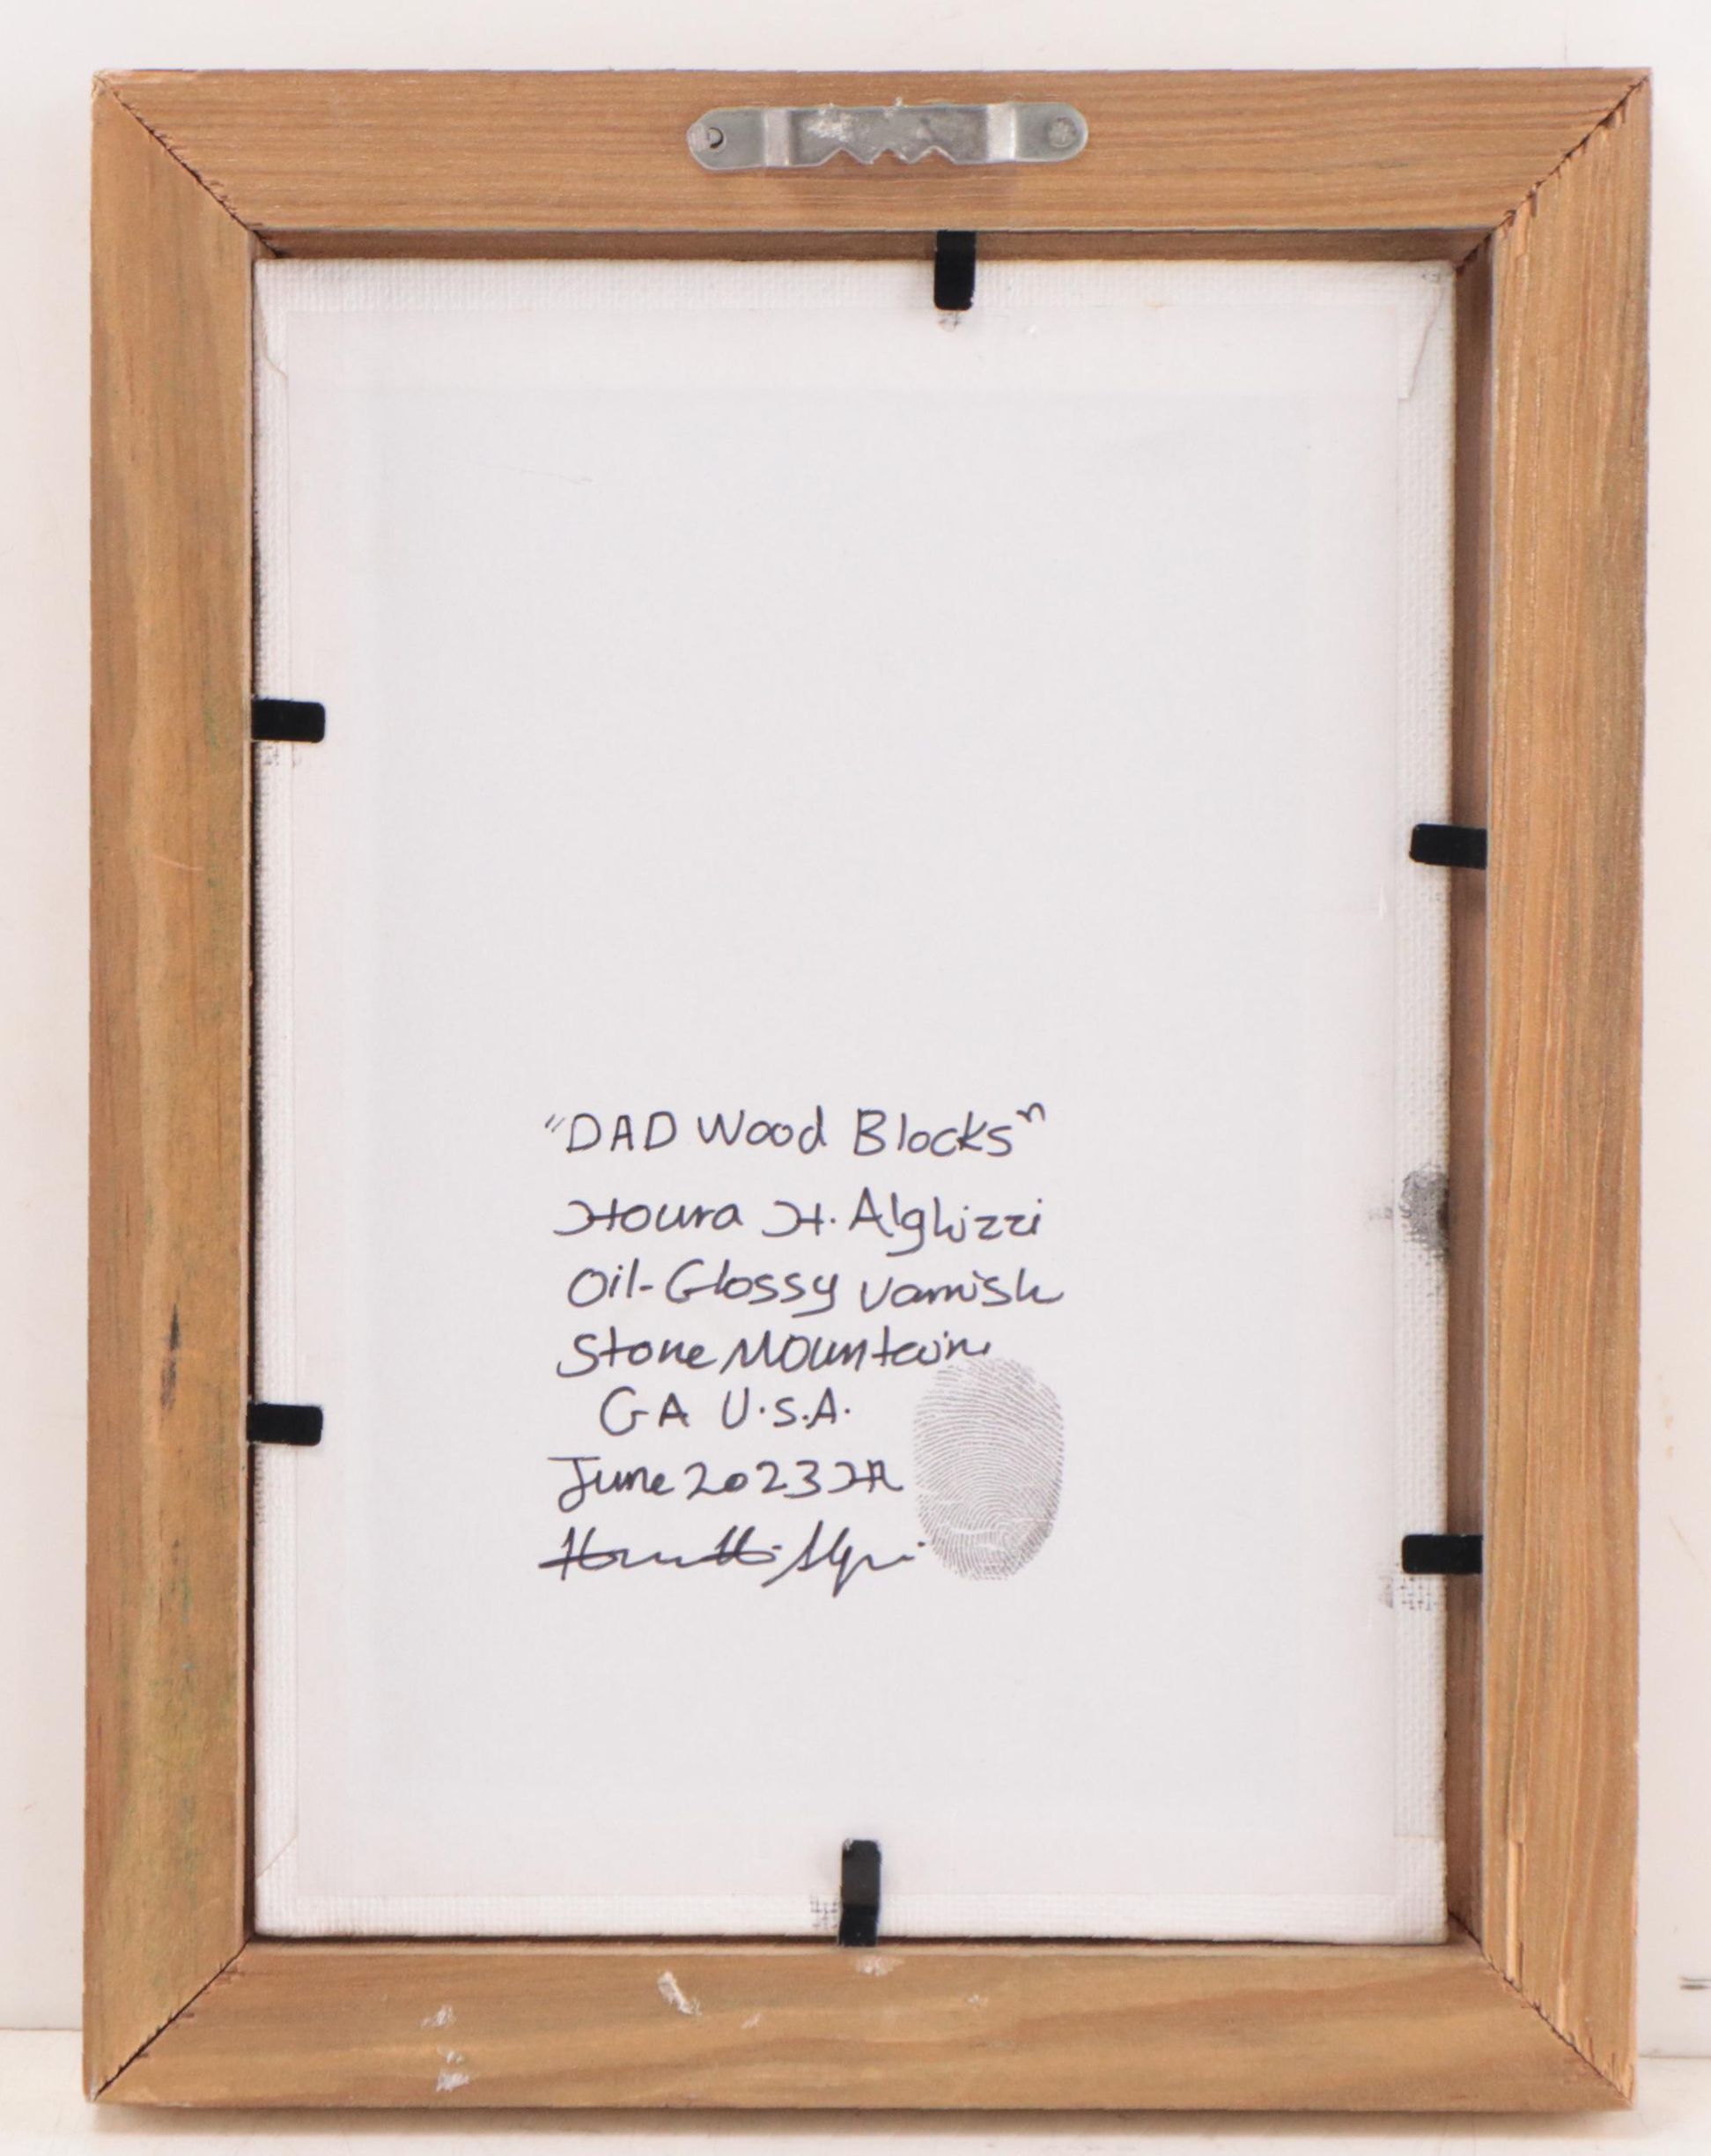 "DAD Wood Blocks"
Houra H. Alghizzi
Oil-Glossy varnish
Stone Mountain
GA U.S.A.
June 2023